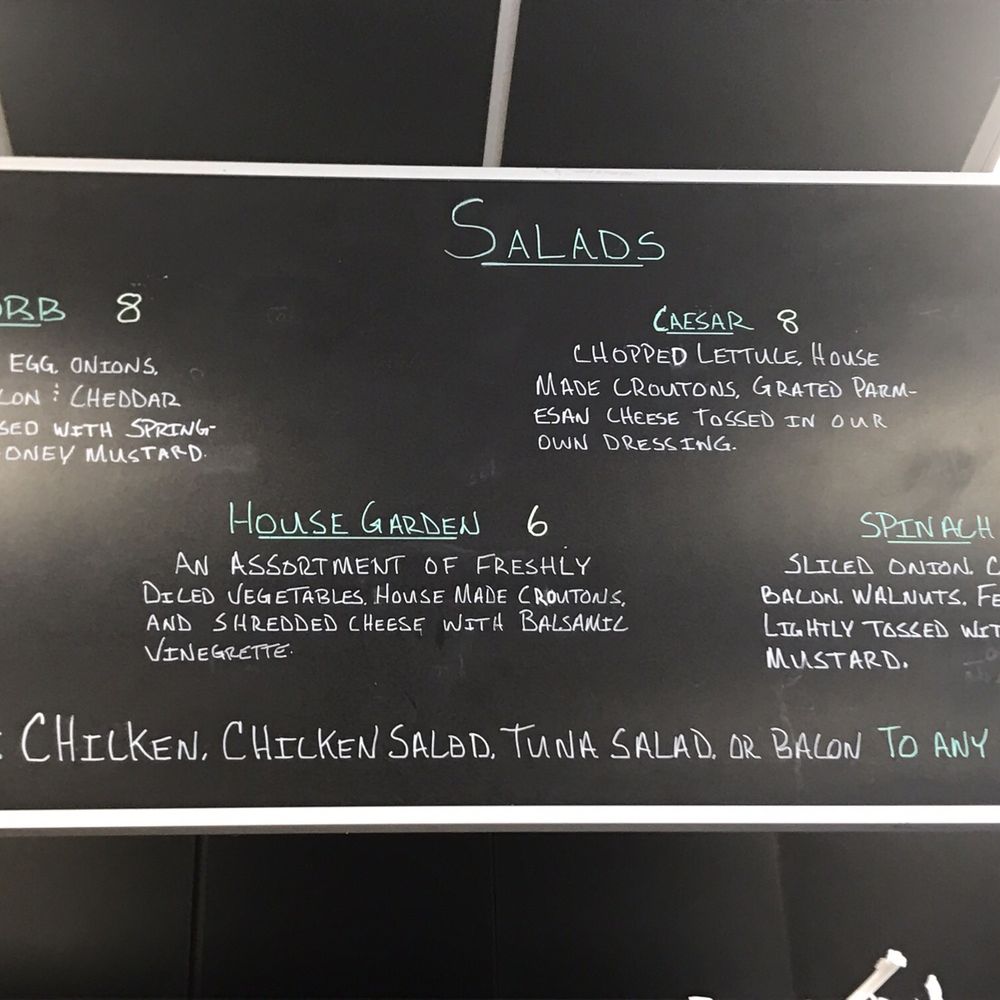 SALADS
8
EGG, ONIONS,
CHEDDAR
WITH SPRING-
MUSTARD.
CAESAR 8
CHOPPED LETTUCE, HOUSE
MADE CROUTONS, GRATED PARM-
ESAN CHEESE TOSSED IN OUR
OWN DRESSING.
HOUSE GARDEN 6
AN ASSORTMENT OF FRESHLY
DICED VEGETABLES, HOUSE MADE CROUTONS,
AND SHREDDED CHEESE WITH BALSAMIC
VINEGRETTE.
SPINACH
SLICED ONION,
BACON, WALNUTS,
LIGHTLY TOSSED
MUSTARD.
: CHICKEN, CHICKEN SALAD, TUNA SALAD, OR BACON TO ANY